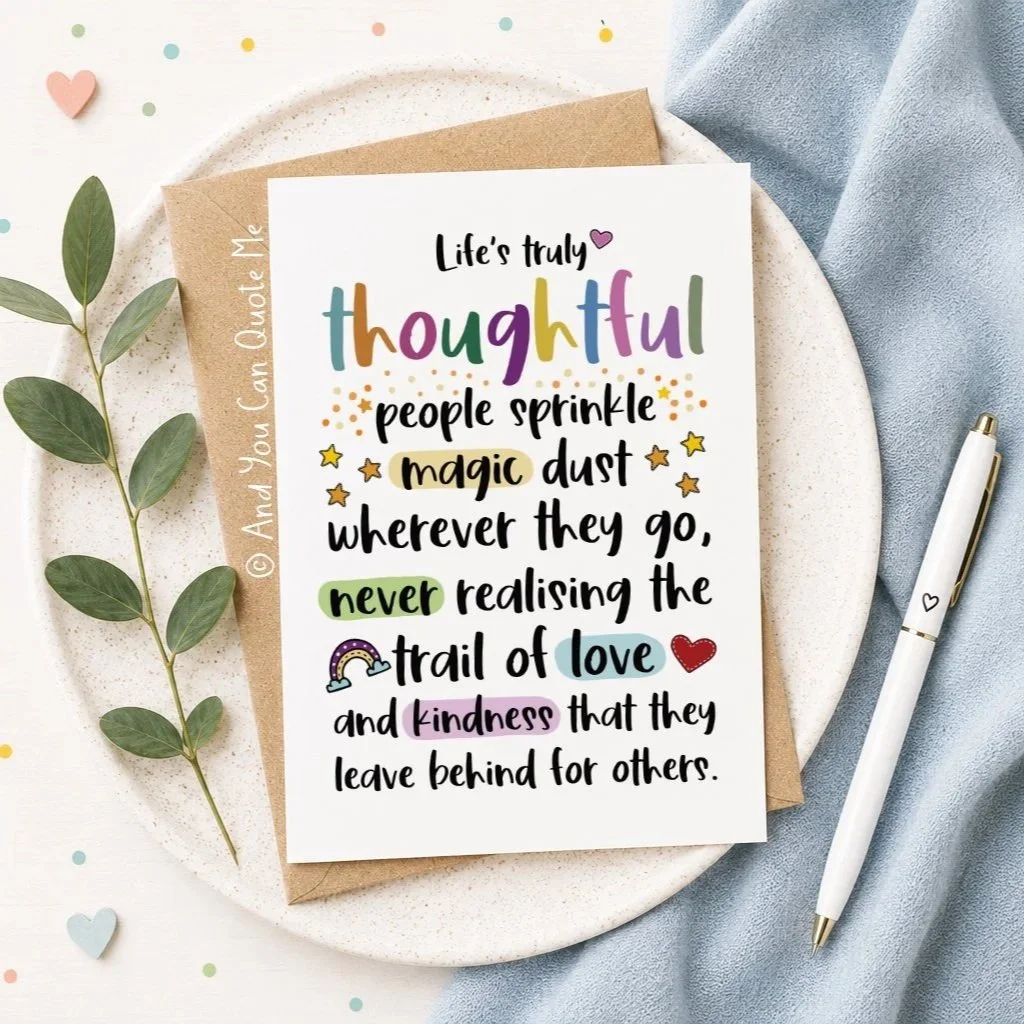 Life's truly
thoughtful
people sprinkle
magic dust
wherever they go,
never realising the
trail of love
and kindness that they
leave behind for others.
© And You Can Quote Me